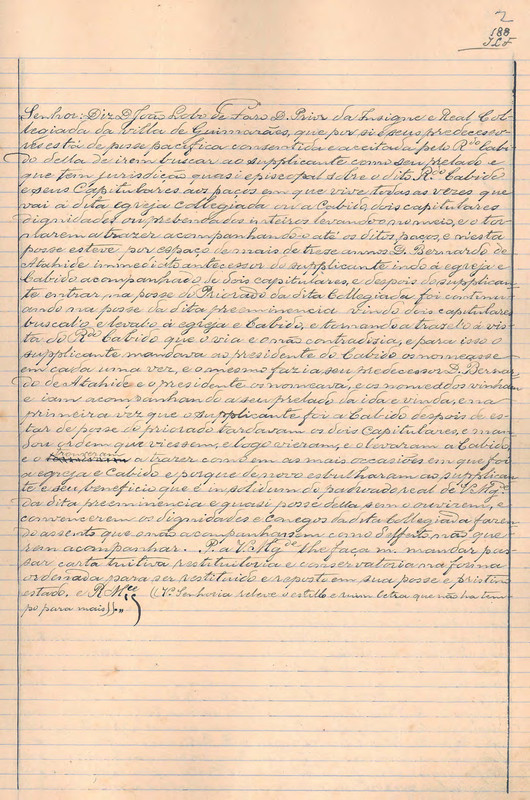 2
188
Senhor: Diz D. João Lobo de Faro D. Prior da Insigne e Real Col-
legiada da Villa de Guimarães, que por si e seus predecesso-
res está de posse pacifica consentida e acceitada pelo R.do Cabi-
do della de irem buscar ao supplicante como seu prelado e
que tem jurisdição quasi episcopal sobre o dito R.do Cabido
e seus Capitulares aos paços em que vive todas as vezes que
vai á dita egreja collegiada ou a Cabido, dois capitulares
dignidades ou prebendados inteiros levando-o no meio, e o tor-
narem a trazer acompanhando-o até os ditos paços, e n'esta
posse esteve por espaço de mais de trese annos D. Bernardo de
Atahide immediato antecessor do supplicante indo á egreja e
Cabido acompanhado de dois capitulares, e depois do supplican-
te entrar na posse do Priorado da dita Collegiada foi continu-
ando na posse da dita preeminencia vindo dois capitulares
buscal-o e leval-o á egreja e Cabido, e tornando a trazel-o á vis-
ta do R.do Cabido que o via e o não contradisia, e para isso o
supplicante mandava ao presidente do Cabido os nomeasse
em cada uma vez, e o mesmo fazia seu predecessor D. Bernar-
do de Atahide e o presidente os nomeava, e os nomeados vinham
e iam acompanhando a seu prelado da ida e vinda, e na
primeira vez que o supplicante foi a Cabido depois de es-
tar de posse do priorado tardavam os dois Capitulares, e man-
dou ordem que viessem, e logo vieram, e o levaram a Cabido,
e o tornaram a trazer como em as mais occasiões em que foi
a egreja e Cabido e porque de novo esbulharam ao supplican-
te e seu beneficio que é in solidum do padroado real de V. Mg.de
da dita preeminencia e quasi posse della sem o ouvirem, e
convencerem os dignidades e conegos da dita Collegiada fazen-
do assento que o não acompanhassem como deffeito não que-
rem acompanhar. P. a V. Mg.de lhe faça m. mandar pas-
sar carta tuitiva restitutoria e conservatoria na forma
ordenada para ser restituido e reposto em sua posse e pristino
estado. e R. M.ce ((V.a Senhoria releve o estillo e ruim letra que não ha tem-
po para mais)).,,